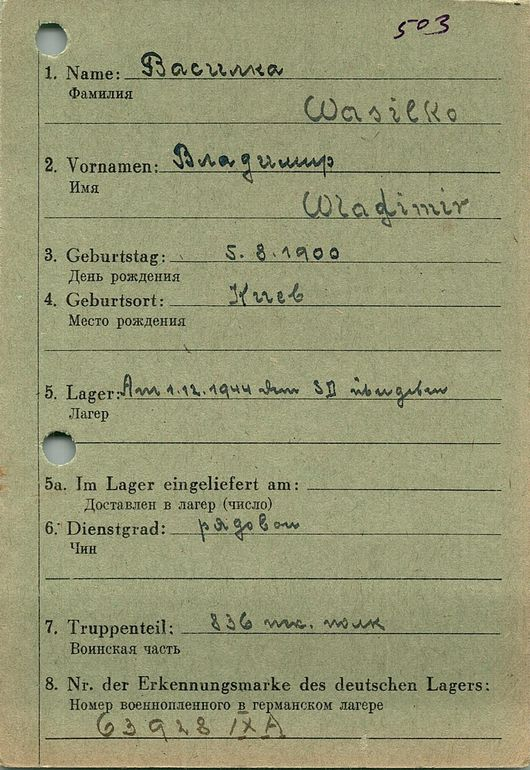 503
1. Name: Василка
Фамилия
Wasilko
2. Vornamen: Владимир
Имя
Wladimir
3. Geburtstag: 5.8.1900
День рождения
4. Geburtsort: Киев
Место рождения
5. Lager: Am 1.12.1944 dem SD übergeben
Лагер
5a. Im Lager eingeliefert am:
Доставлен в лагер (число)
6. Dienstgrad: рядовой
Чин
7. Truppenteil: 836 полк
Воинская часть
8. Nr. der Erkennungsmarke des deutschen Lagers:
Номер военнопленного в германском лагере
63928 IX A